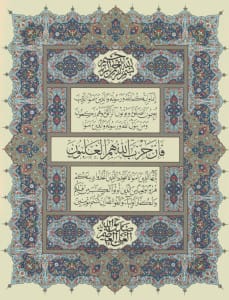 بسم الله الرحمن الرحيم
إنما وليكم الله ورسوله والذين آمنوا الذين
يقيمون الصلاة ويؤتون الزكاة وهم راكعون
ومن يتول الله ورسوله والذين آمنوا
فإن حزب الله هم الغالبون
يا أيها الذين آمنوا لا تتخذوا الذين اتخذوا دينكم
هزوا ولعبا من الذين أوتوا الكتاب من قبلكم
والكفار أولياء واتقوا الله إن كنتم مؤمنين
صدق الله العلي العظيم